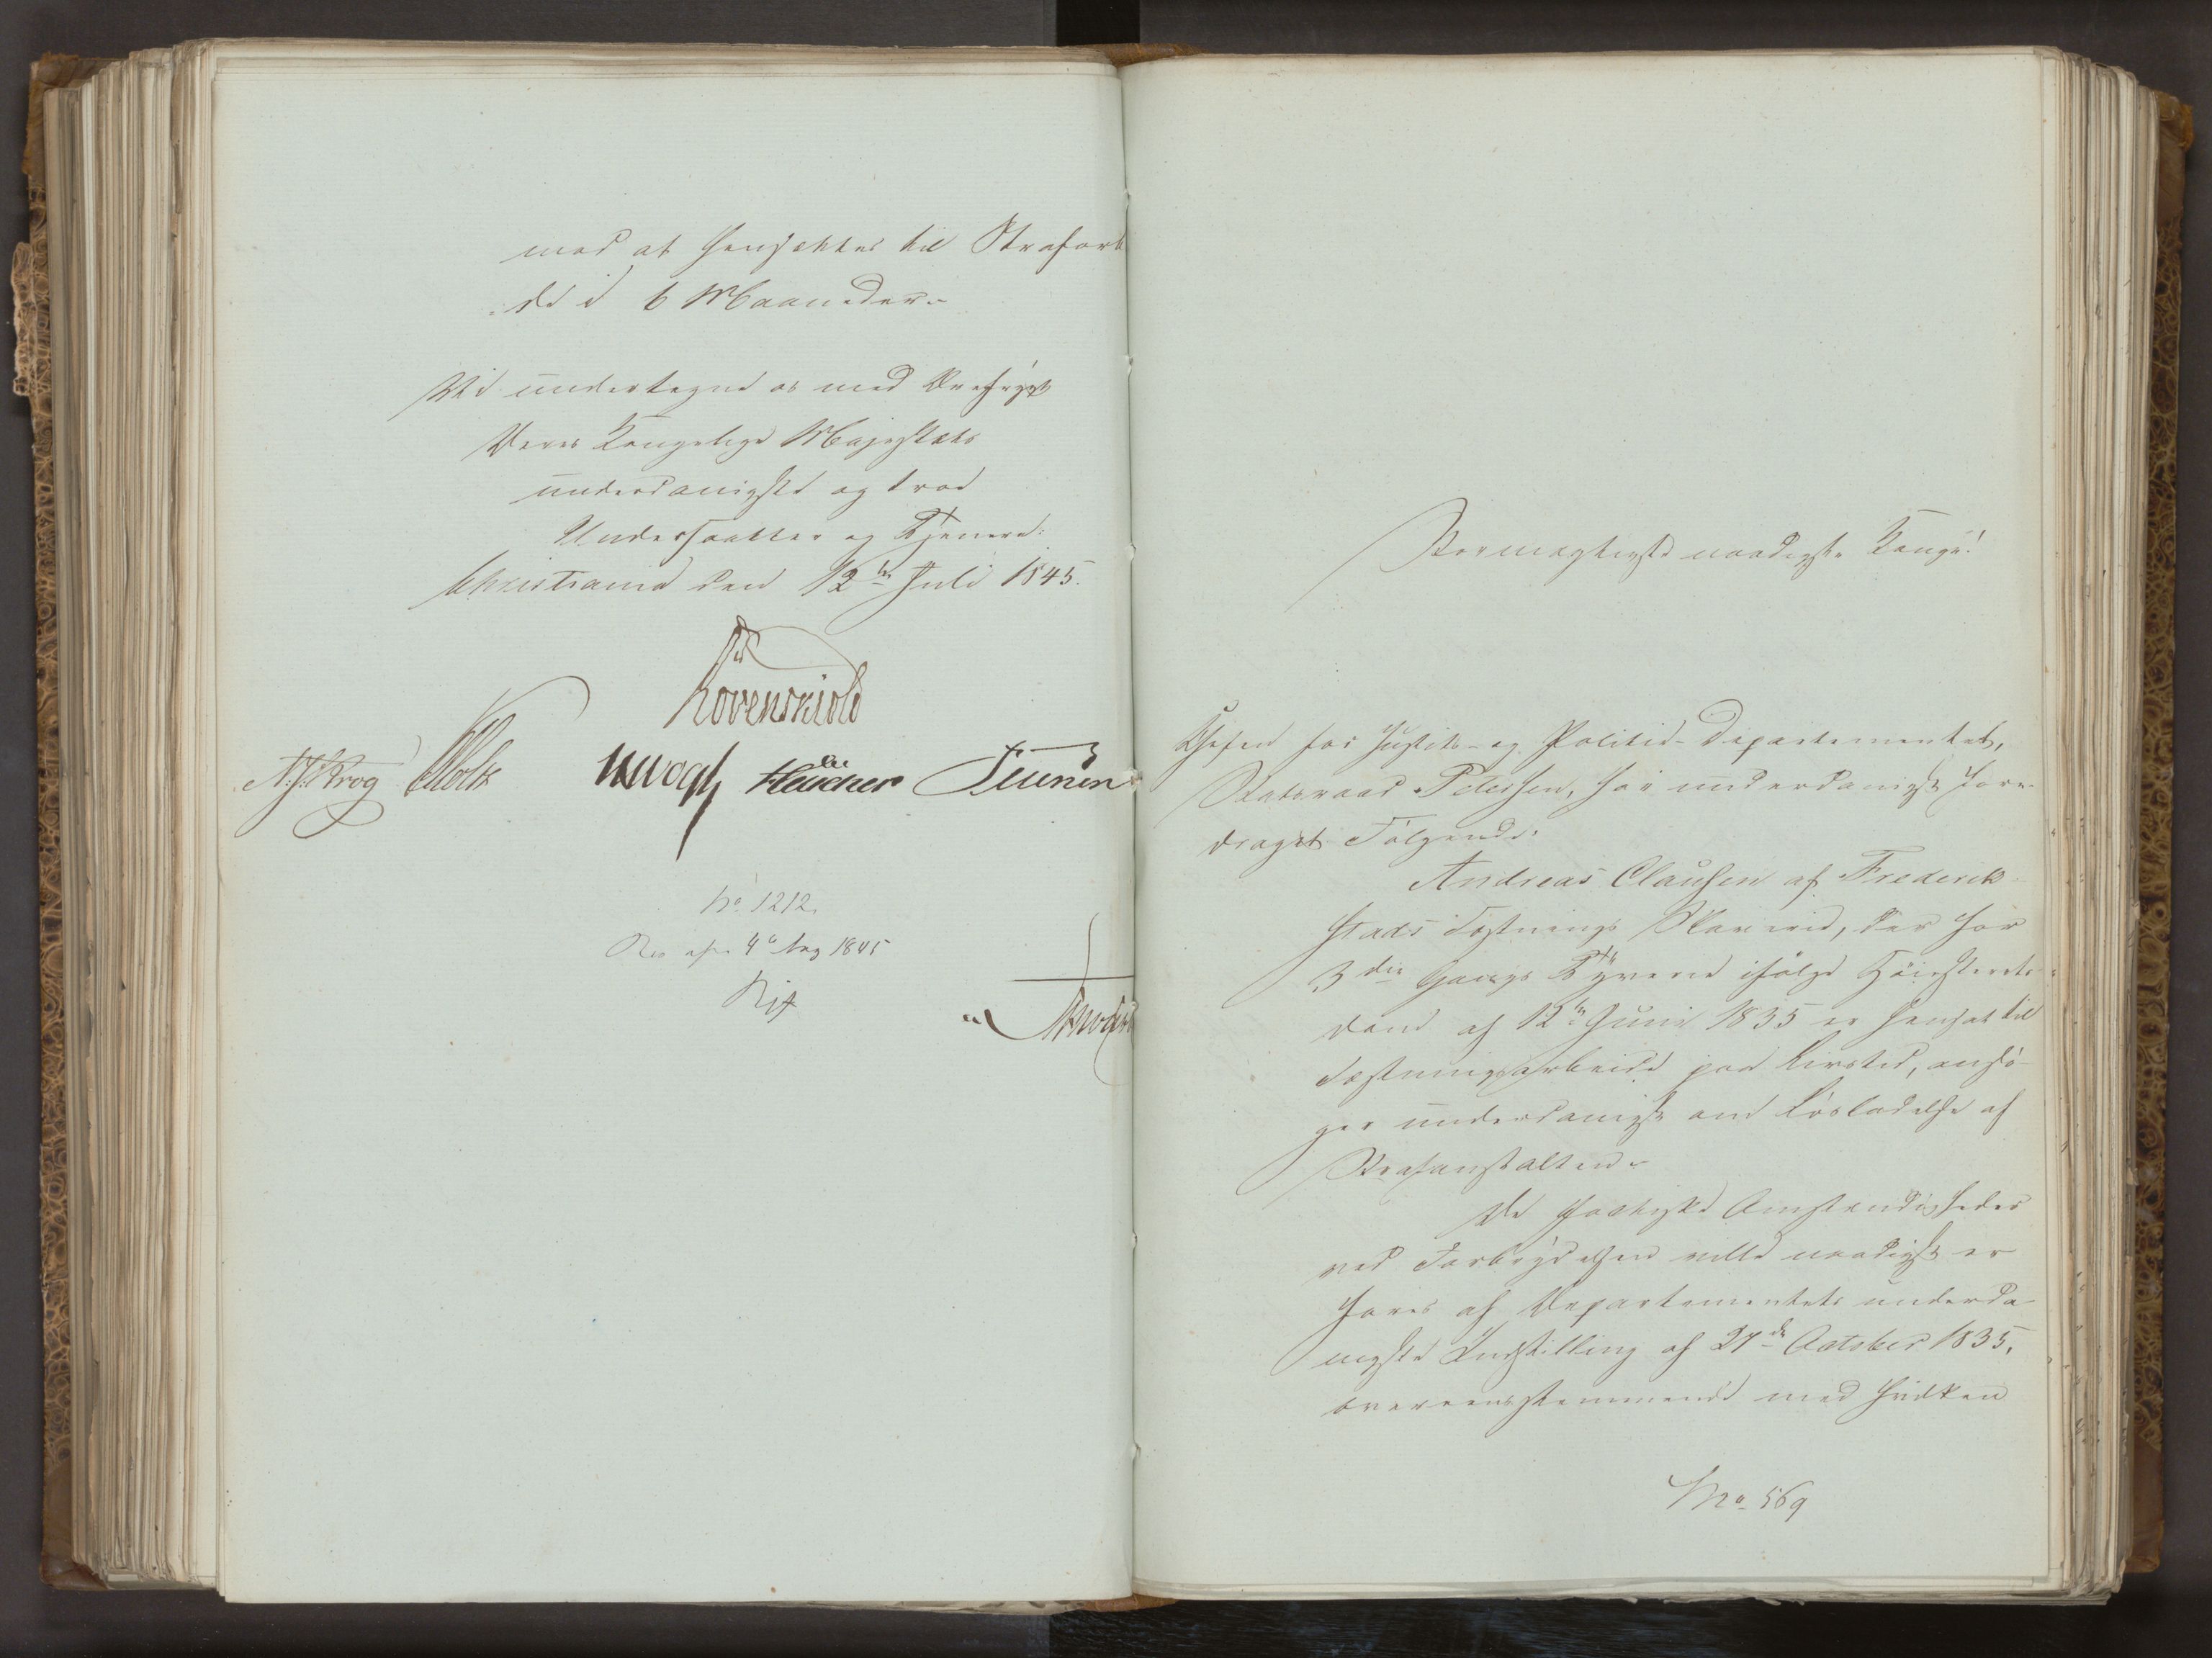 med at hensættes til Strafarb
de i 6 Maaneder.
Vi undertegne os med Ærefrygt
Deres Kongelige Majestæts
underdanigste og troe
Undersaatter og Tjenere:
Christiania den 12te Juli 1845.
Løvenskiold
N. J. Krog Holst JHVogt
No 1212.
Res af 4 Aug 1845
Stormægtigste naadigste Konge!
Chefen for Justits- og Politie-Departementet,
Statsraad Petersen, har underdanigst fore-
draget Følgende:
Andreas Clausen af Frederik
stads Fæstnings Slaverie, der for
3die Gangs Tyverie ifølge Høiesterets-
dom af 12te Juni 1835 er hensat til
Fæstningsarbeide paa Livstid, ansø-
ger underdanigst om Løsladelse af
Strafanstalten.
De factiske Omstændigheder
ved Forbrydelsen ville naadigst er
fares af Departementets underda
nigste Indstilling af 27de October 1835,
overeensstemmende med hvilken
No 569